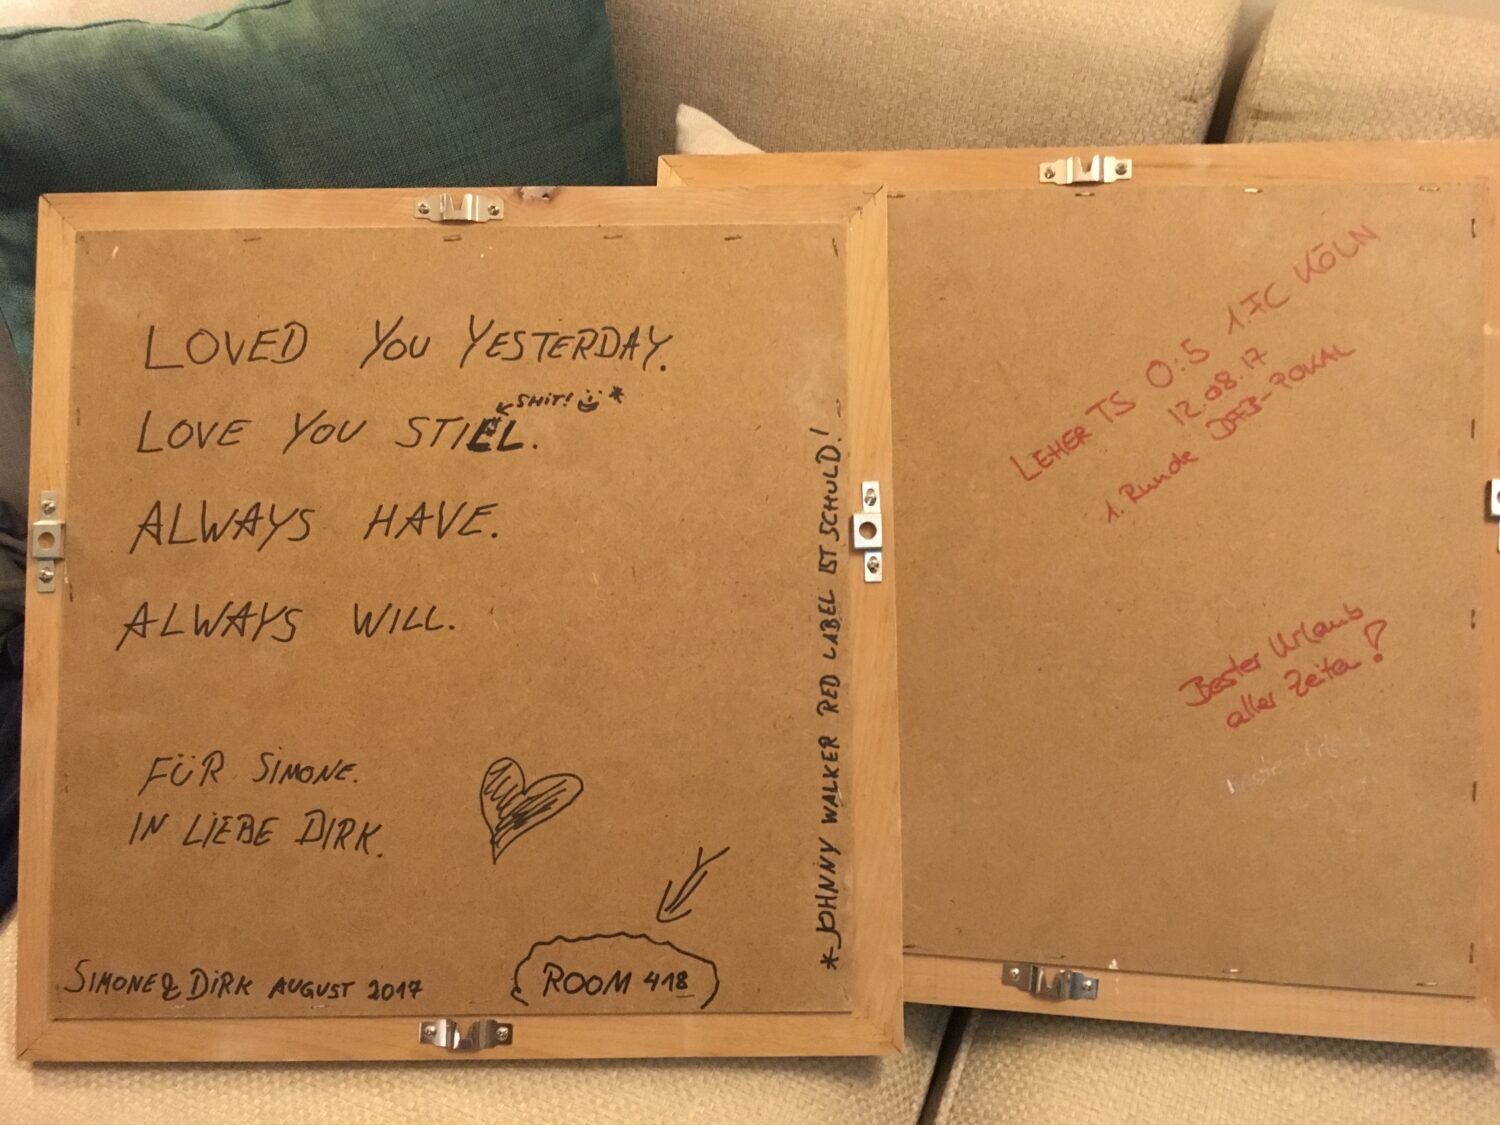 LOVED YOU YESTERDAY.
SHIT! *
LOVE YOU STILL.
ALWAYS HAVE.
ALWAYS WILL.
FÜR SIMONE.
IN LIEBE DIRK.
SIMONE & DIRK AUGUST 2017
ROOM 418
* JOHNNY WALKER RED LABEL IST SCHULD!
LEHER TS 0:5 1.FC KÖLN
12.08.17
1. Runde DFB-POKAL
Bester Urlaub
aller Zeiten!